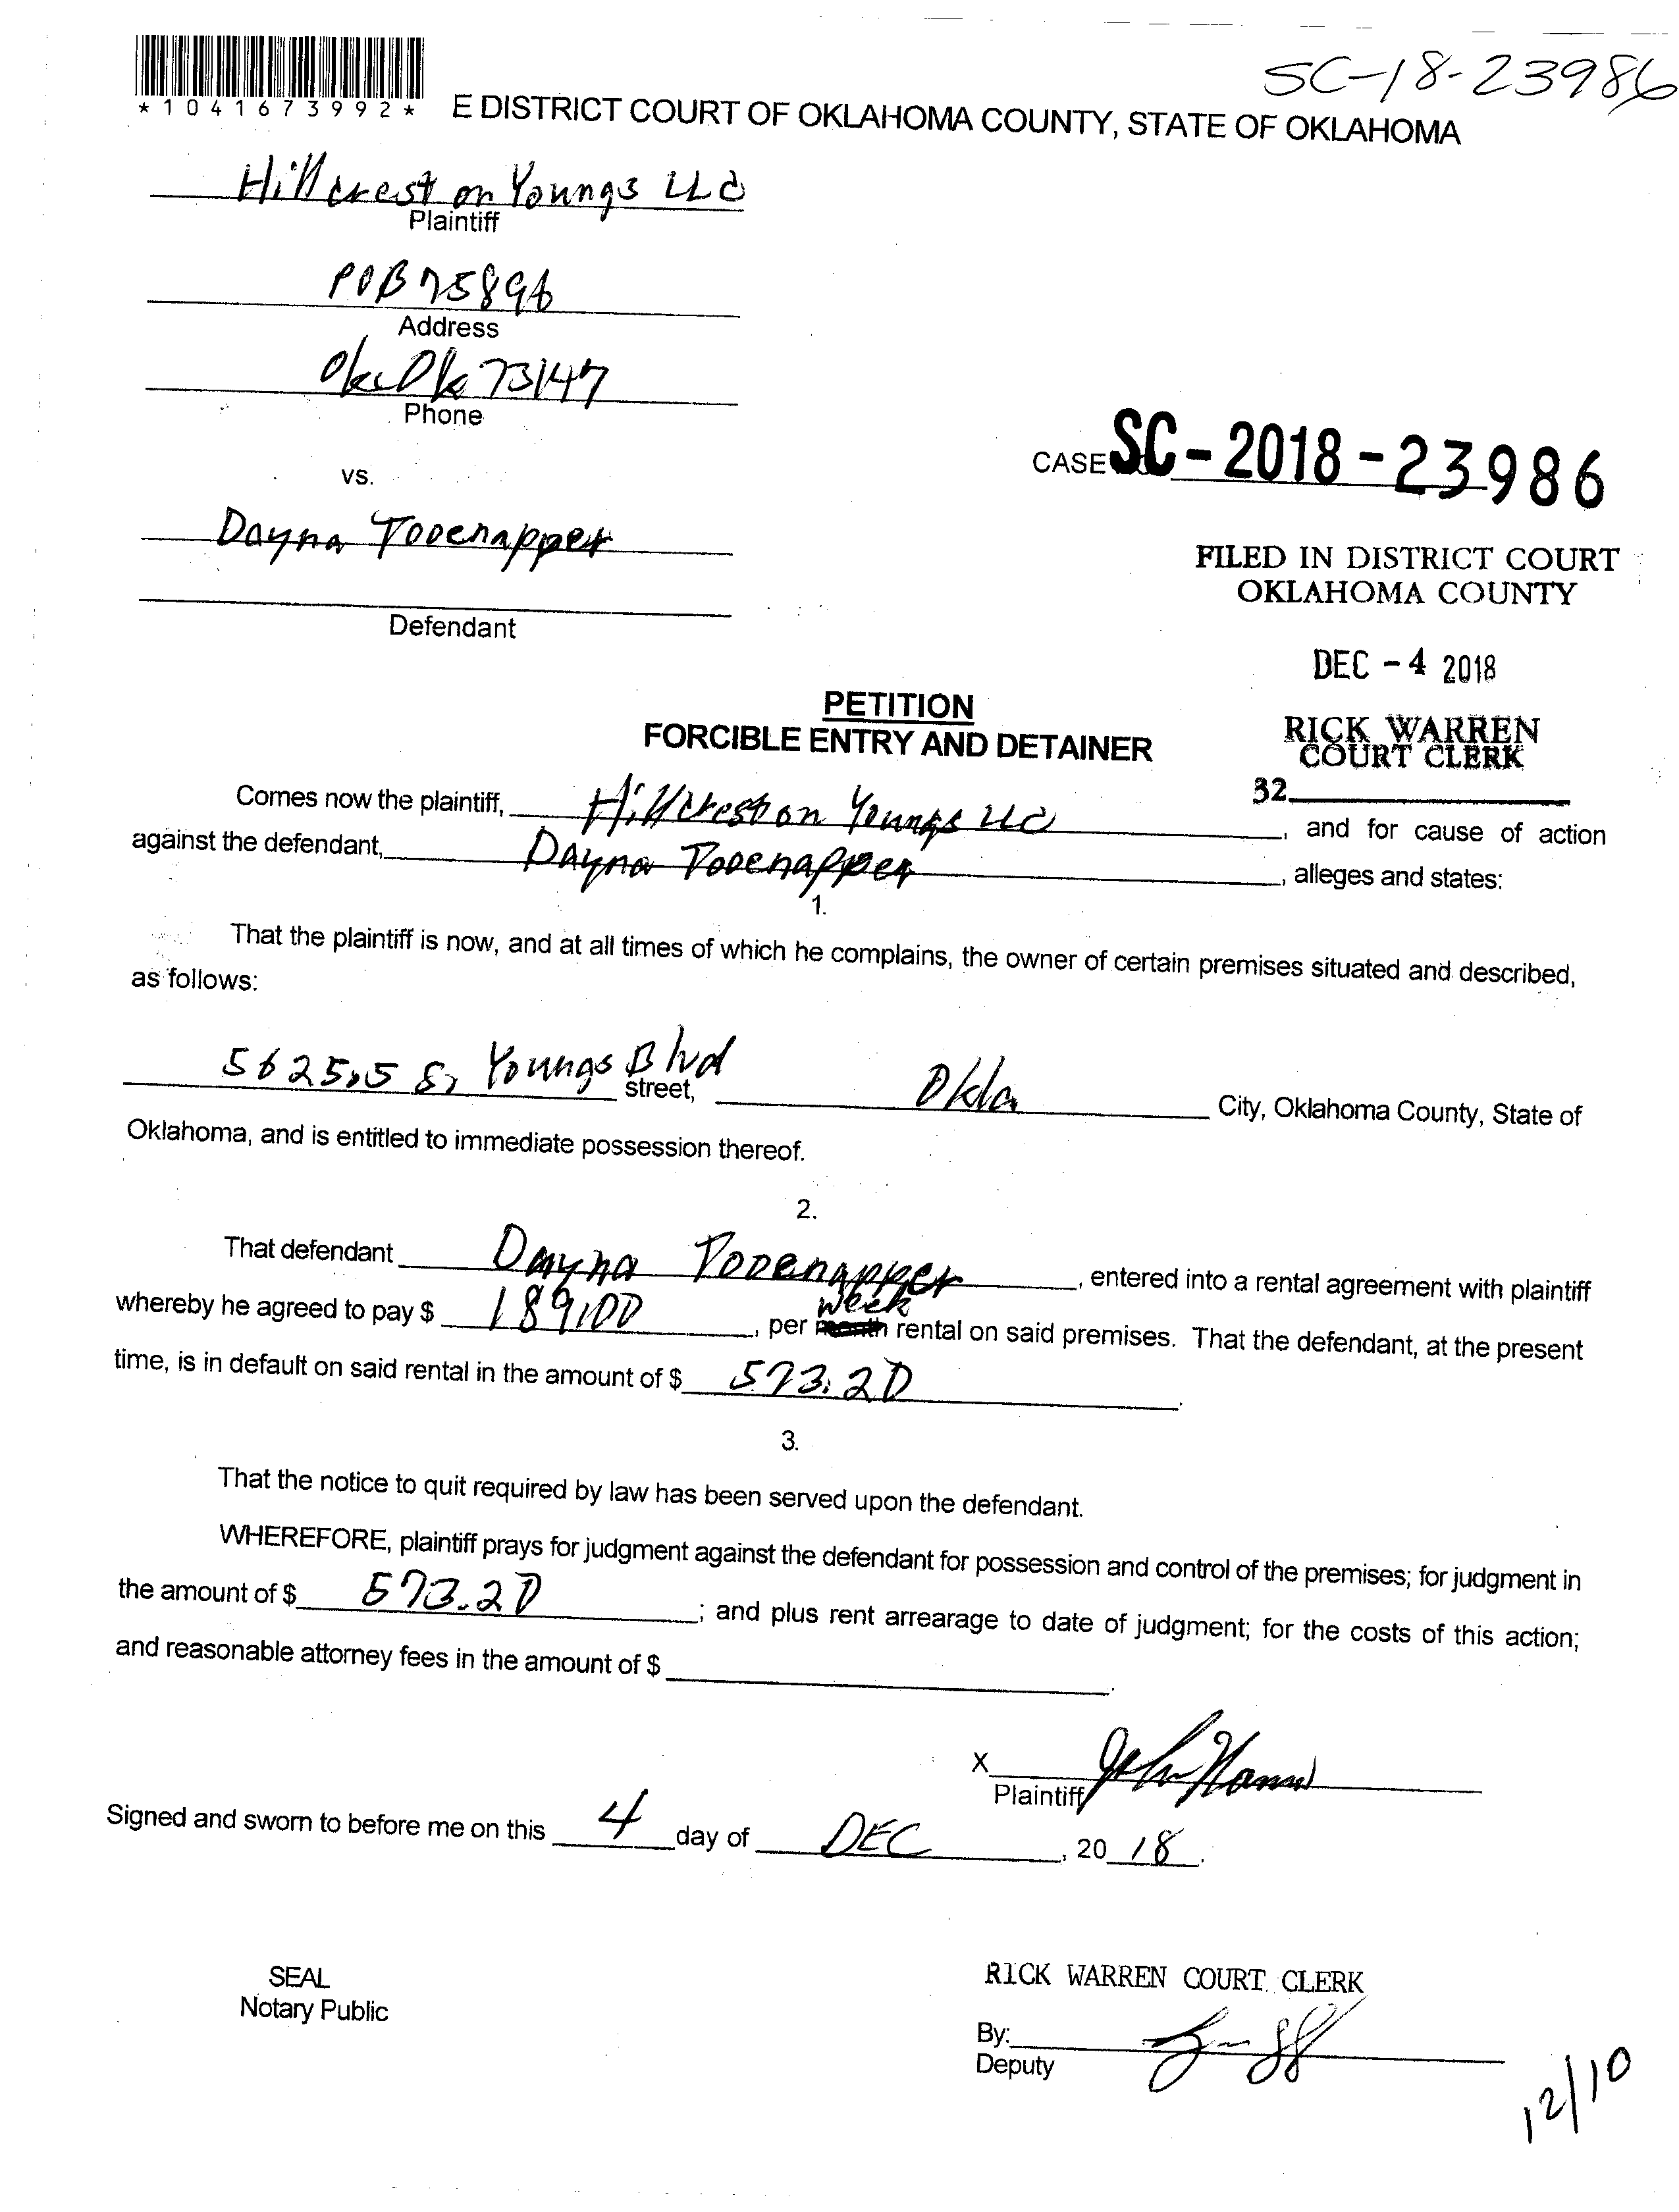 SC-18-23986
*1041673992*
E DISTRICT COURT OF OKLAHOMA COUNTY, STATE OF OKLAHOMA
Hillcrest on Youngs LLC
Plaintiff
POB 75896
Address
Okc Ok 73147
Phone
vs.
CASE SC-2018-23986
Dayna Todenapper
Defendant
FILED IN DISTRICT COURT
OKLAHOMA COUNTY
DEC - 4 2018
RICK WARREN
COURT CLERK
32
PETITION
FORCIBLE ENTRY AND DETAINER
Comes now the plaintiff, Hillcrest on Youngs LLC, and for cause of action
against the defendant, Dayna Todenapper, alleges and states:
1.
That the plaintiff is now, and at all times of which he complains, the owner of certain premises situated and described,
as follows:
5625.5 S, Youngs Blvd street, Okla City, Oklahoma County, State of
Oklahoma, and is entitled to immediate possession thereof.
2.
That defendant Dayna Todenapper, entered into a rental agreement with plaintiff
week
whereby he agreed to pay $ 189.00, per month rental on said premises. That the defendant, at the present
time, is in default on said rental in the amount of $ 573.20.
3.
That the notice to quit required by law has been served upon the defendant.
WHEREFORE, plaintiff prays for judgment against the defendant for possession and control of the premises; for judgment in
the amount of $ 573.20; and plus rent arrearage to date of judgment; for the costs of this action;
and reasonable attorney fees in the amount of $.
X
Plaintiff
Signed and sworn to before me on this 4 day of DEC, 20 18.
SEAL
Notary Public
RICK WARREN COURT CLERK
By:
Deputy
12/10